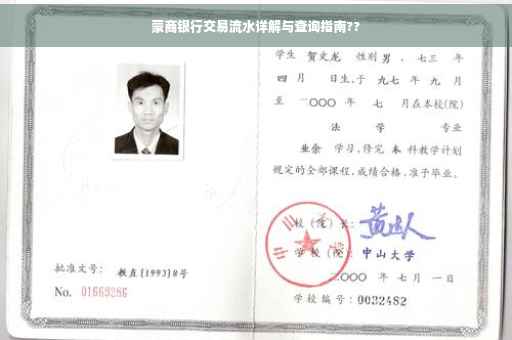 蒙商银行交易流水详解与查询指南??
学生 贺文龙 性别 男 、七三 年
四 月 日生,于 九七 年 九 月
至 二〇〇〇 年 七 月在本校(院)
法 学 专业
业余 学习,修完 本 科教学计划
规定的全部课程,成绩合格,准予毕业。
校(院)长:
学校(院): 中山大学
二〇〇〇 年 七 月 一 日
学校编号: 0032482
批准文号: 教直[1993]8号
No. 01669286